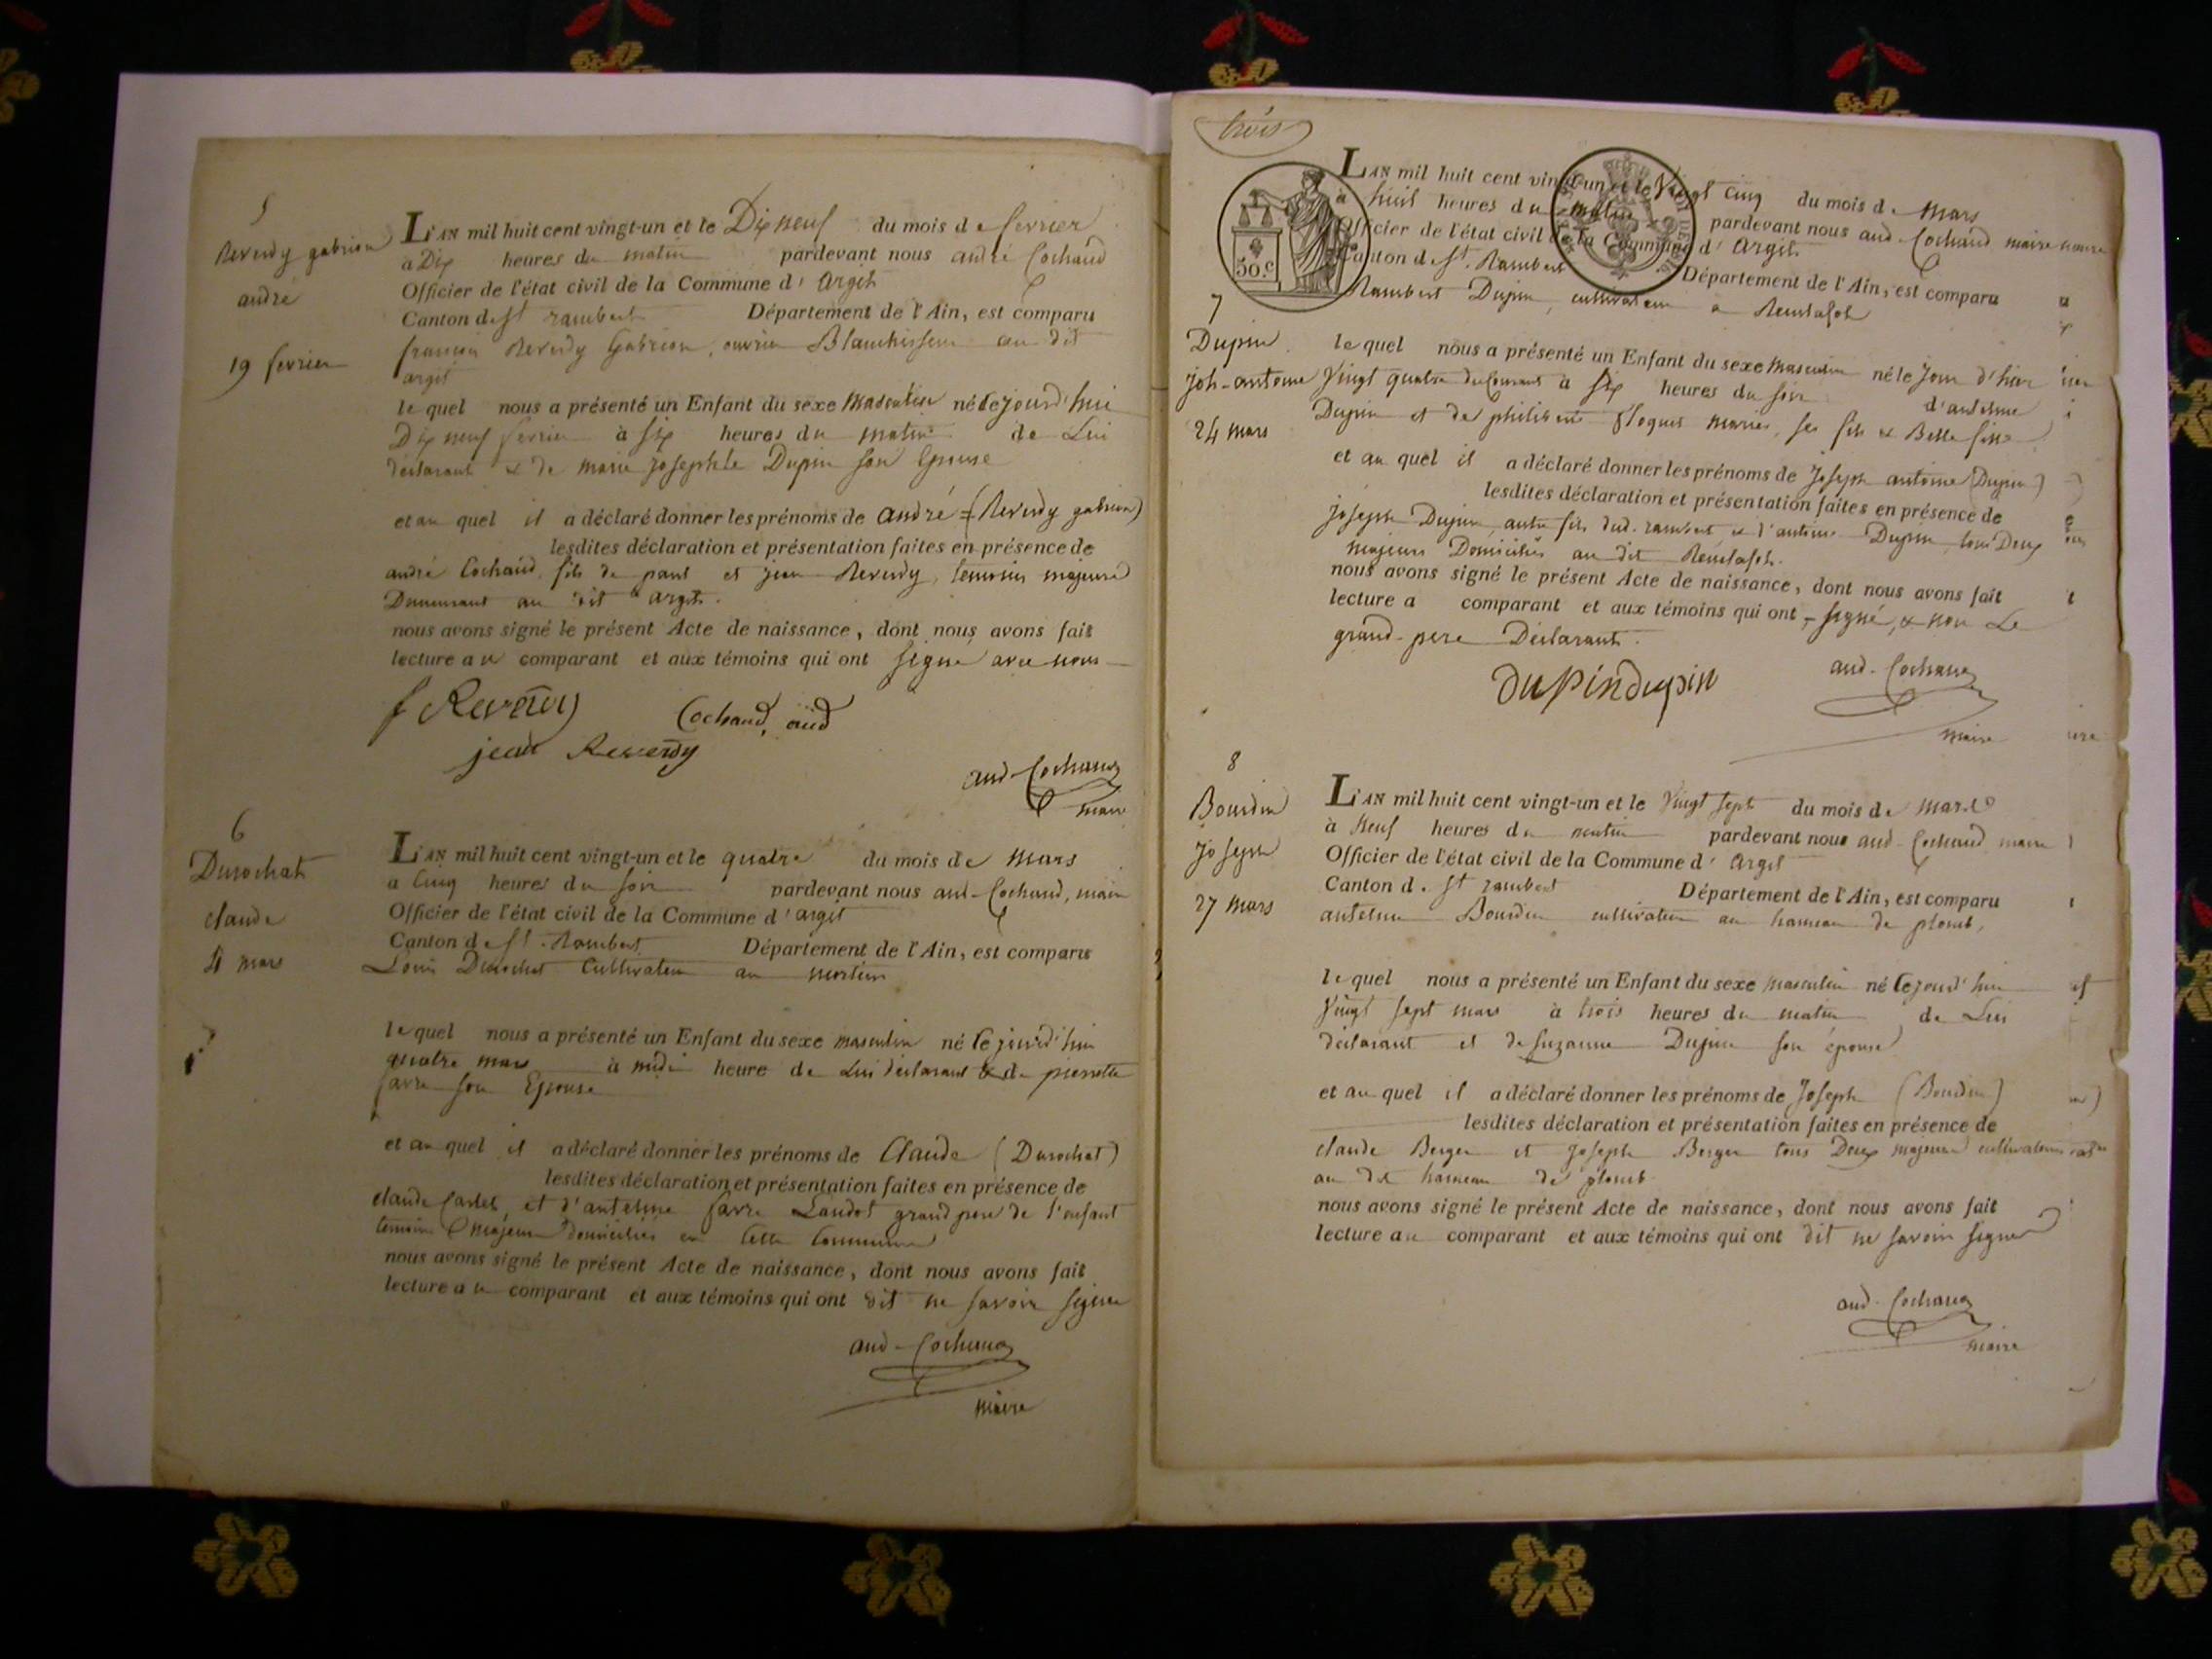 5
Reverdy gabrion
andré
19 fevrier
L'AN mil huit cent vingt-un et le Dix neuf du mois de fevrier
à Dix heures du matin pardevant nous andré Cochaud
Officier de l'état civil de la Commune d'argit
Canton de St rambert Département de l'Ain, est comparu
françois Reverdy Gabrion, ouvrier Blanchisseur au dit
argit
lequel nous a présenté un Enfant du sexe masculin né Cejourd'hui
Dix neuf fevrier à six heures du matin de Lui
déclarant & de marie josephte Dupin son Epouse
et au quel il a déclaré donner les prénoms de andré = (Reverdy gabrion)
lesdites déclaration et présentation faites en présence de
andré Cochaud, fils de paul et jean Reverdy, temoins majeurs
Demeurant au dit argit.
nous avons signé le présent Acte de naissance, dont nous avons fait
lecture au comparant et aux témoins qui ont signé avec nous
f Reverdy
Cochaud, and
jean Reverdy
and-Cochaud
maire
6
Durochat
claude
4 mars
L'AN mil huit cent vingt-un et le quatre du mois de Mars
à Cinq heures du soir pardevant nous and-Cochaud, maire
Officier de l'état civil de la Commune d'argit
Canton de St. Rambert Département de l'Ain, est comparu
Louis Durochat Cultivateur au
lequel nous a présenté un Enfant du sexe masculin né Cejourd'hui
quatre mars à midi heure de Lui déclarant & de pierrette
favre son Epouse
et au quel il a déclaré donner les prénoms de Claude (Durochat)
lesdites déclaration et présentation faites en présence de
claude et d'antelme favre grand pere de l'enfant
temoins majeurs domiciliés en Cette Commune
nous avons signé le présent Acte de naissance, dont nous avons fait
lecture au comparant et aux témoins qui ont dit ne savoir signer
and-Cochaud
maire
trois
50.c
L'AN mil huit cent vingt-un et le Vingt cinq du mois de Mars
à huit heures du matin pardevant nous and-Cochaud maire
Officier de l'état civil de la Commune d'Argit
Canton de St. Rambert Département de l'Ain, est comparu
Rambert Dupin, cultivateur à
7
Dupin
joh-antoine
24 mars
lequel nous a présenté un Enfant du sexe masculin né le jour d'hier
Vingt quatre du Courant à six heures du soir d'antelme
Dupin et de mariés, ses fils & Belle fille
et au quel il a déclaré donner les prénoms de Joseph antoine (Dupin)
lesdites déclaration et présentation faites en présence de
joseph Dupin, autre fils dud. rambert & d'antoine Dupin, tous Deux
majeurs Domiciliés au dit
nous avons signé le présent Acte de naissance, dont nous avons fait
lecture a comparant et aux témoins qui ont signé, & non Le
grand-pere Déclarant.
Dupin dupin
and-Cochaud
maire
8
Bourdin
joseph
27 mars
L'AN mil huit cent vingt-un et le Vingt sept du mois de Mars
à Neuf heures du matin pardevant nous and-Cochaud maire
Officier de l'état civil de la Commune d'Argit
Canton de St rambert Département de l'Ain, est comparu
antelme Bourdin cultivateur au hameau de plomb,
lequel nous a présenté un Enfant du sexe masculin né Cejourd'hui
Vingt sept mars à trois heures du matin de Lui
déclarant et de Suzanne Dupin son épouse
et au quel il a déclaré donner les prénoms de Joseph (Bourdin)
lesdites déclaration et présentation faites en présence de
claude Berger et joseph Berger tous Deux majeurs cultivateurs
au dit hameau de plomb
nous avons signé le présent Acte de naissance, dont nous avons fait
lecture au comparant et aux témoins qui ont dit ne savoir signer
and-Cochaud
maire